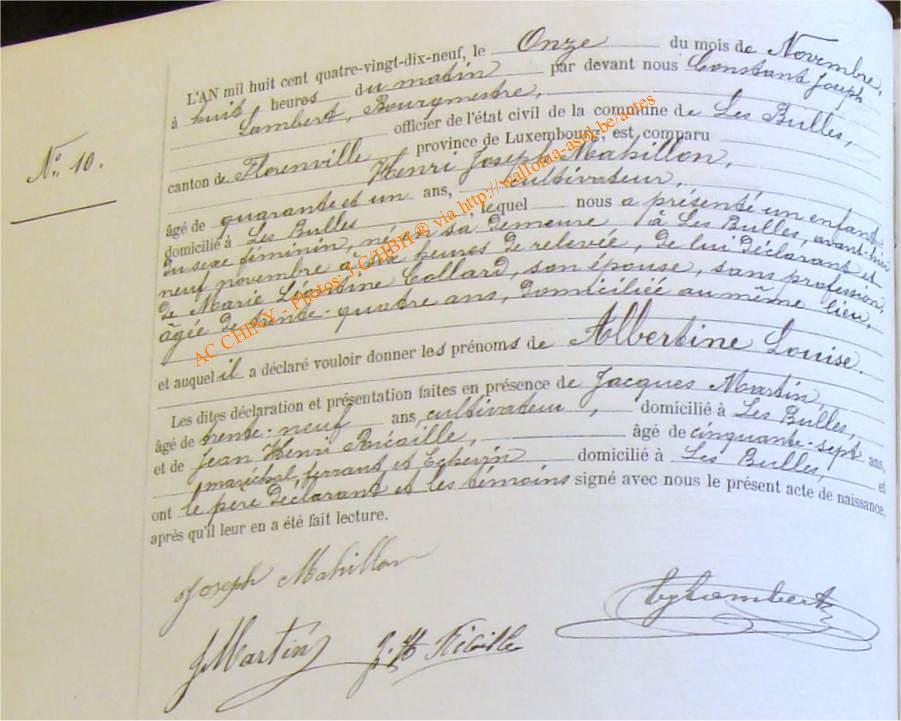 L'AN mil huit cent quatre-vingt-dix-neuf, le Onze du mois de Novembre,
à huit heures du matin par devant nous Constant Joseph
Lambert, Bourgmestre,
officier de l'état civil de la commune de Les Bulles,
canton de Florenville, province de Luxembourg, est comparu
Henri Joseph Mahillon,
âgé de quarante et un ans, cultivateur,
domicilié à Les Bulles, lequel nous a présenté un enfant
du sexe féminin, né en sa demeure à Les Bulles, avant-hier
neuf novembre à six heures de relevée, de lui déclarant et
de Marie Léontine Collard, son épouse, sans profession,
âgée de trente-quatre ans, domiciliée au même lieu,
et auquel il a déclaré vouloir donner les prénoms de Albertine Louise.
Les dites déclaration et présentation faites en présence de Jacques Martin,
âgé de trente-neuf ans, cultivateur, domicilié à Les Bulles,
et de Jean Henri Ricaille, âgé de cinquante-sept ans,
maréchal, ferrant et Echevin domicilié à Les Bulles, et
ont le père déclarant et les témoins signé avec nous le présent acte de naissance,
après qu'il leur en a été fait lecture.
No. 10.
Joseph Mahillon
J Martin
J. H Ricaille
Lambert
AC CHINY - Photos: J.C/HBH ® via http://walloma-asbl.be/actes